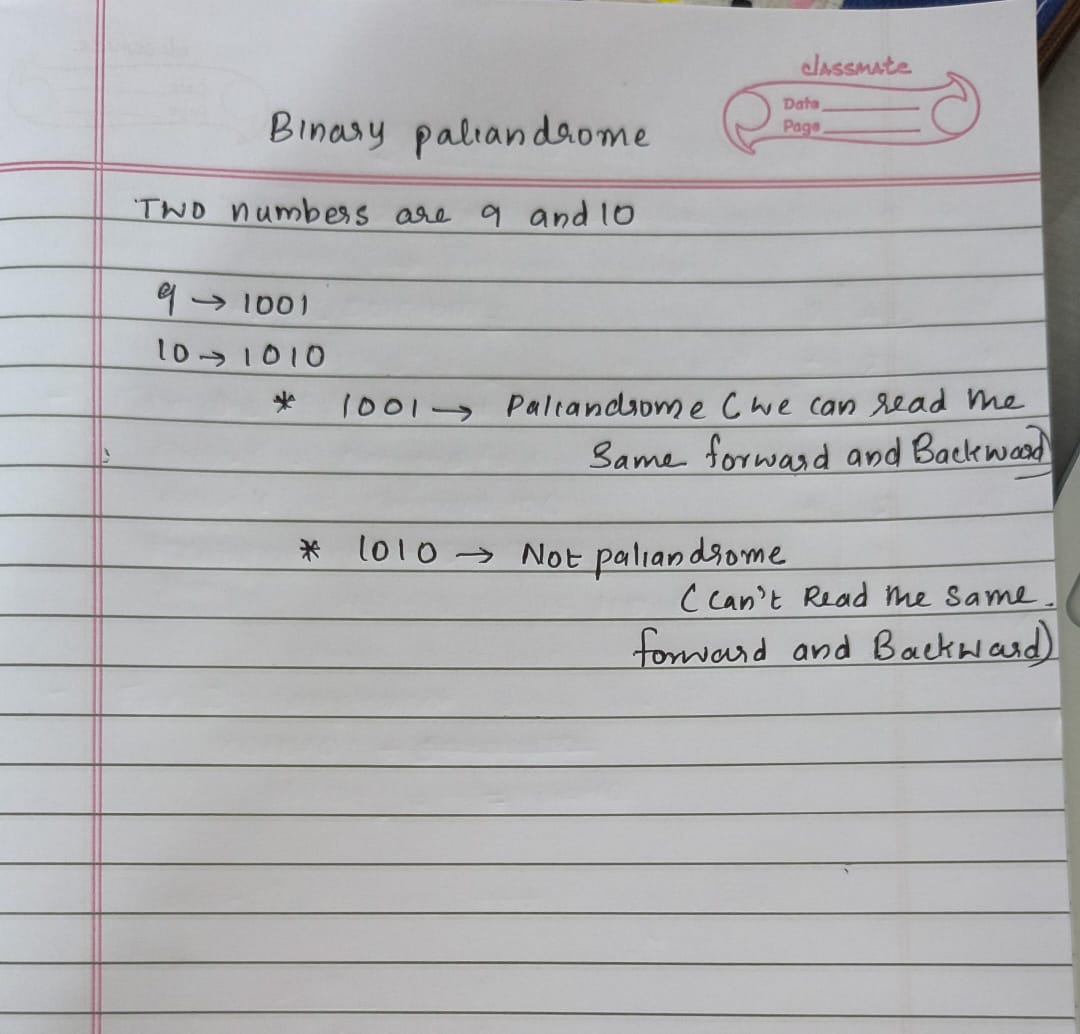 classmate
Date
Page
Binary paliandrome
Two numbers are 9 and 10
9 → 1001
10 → 1010
* 1001 → Paliandrome (we can read the
Same forward and Backward)
* 1010 → Not paliandrome
(can't Read the same.
forward and Backward)